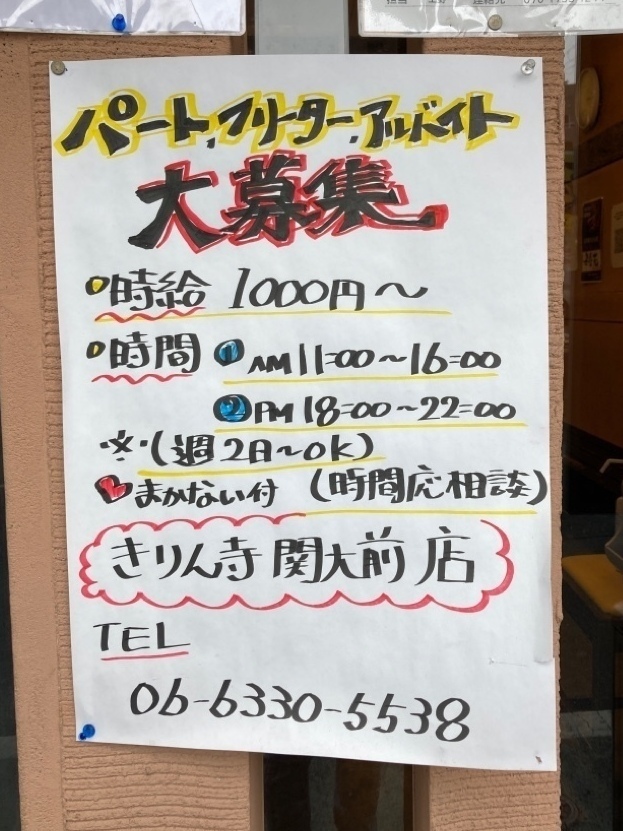 パート,フリーター,アルバイト
大募集
時給 1000円〜
時間 ① AM 11:00〜16:00
② PM 18:00〜22:00
※(週2日〜OK)
まかない付 (時間応相談)
きりん寺 関大前店
TEL
06-6330-5538